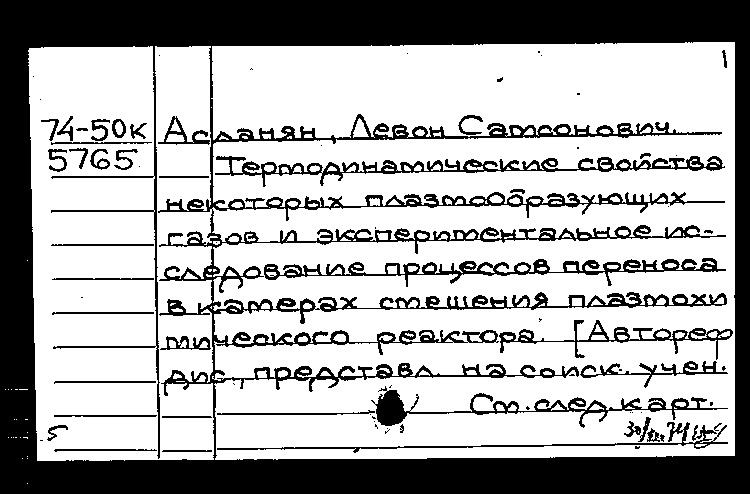 1
74-50к Асланян, Левон Самсонович.
5765 Термодинамические свойства
некоторых плазмообразующих
газов и экспериментальное ис-
следование процессов переноса
в камерах смешения плазмохи
мического реактора. [Автореф
дис., представл. на соиск. учен.
См. след. карт.
5